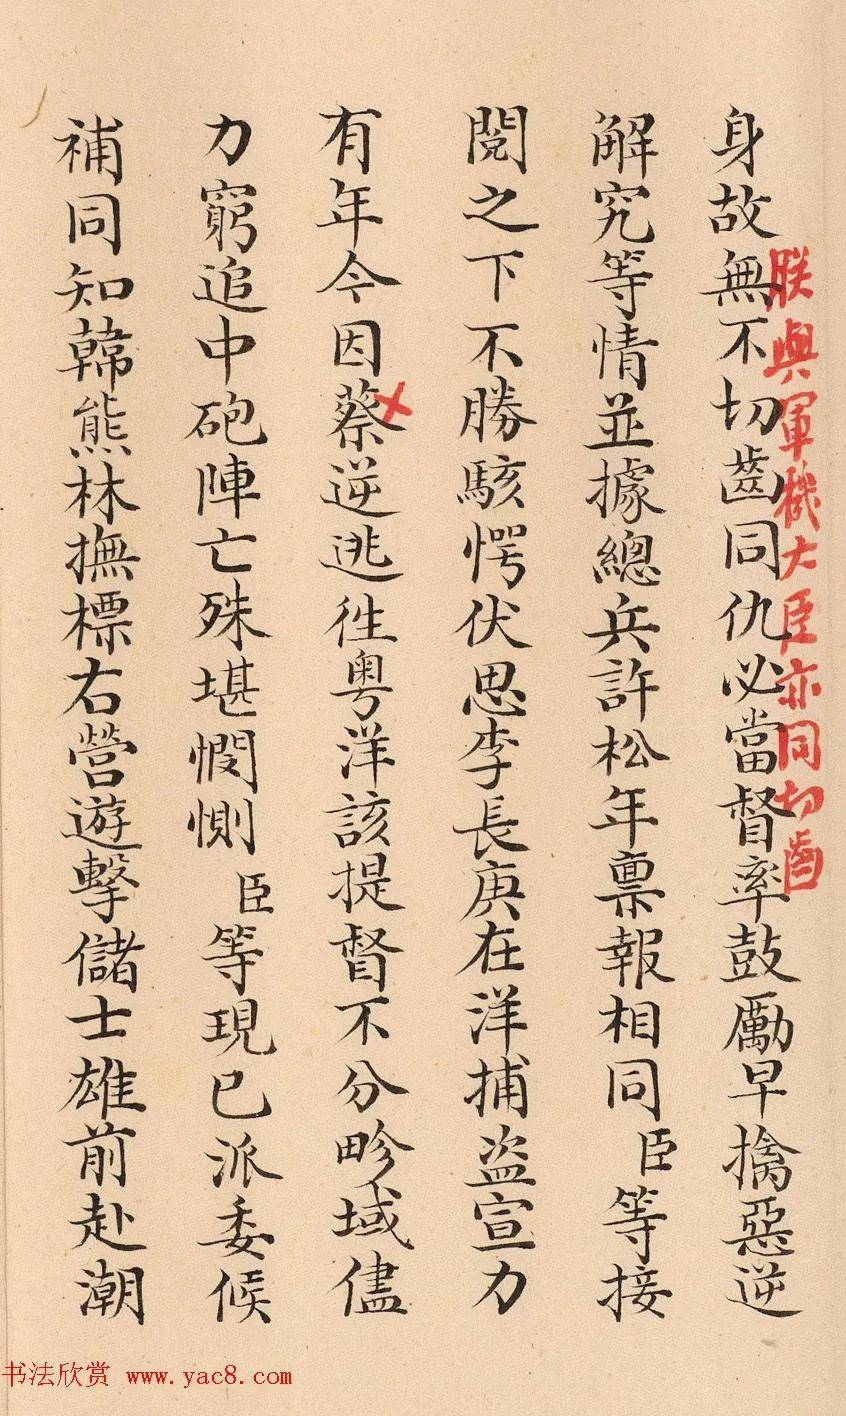 身故無不切齒同仇必當督率鼓勵早擒惡逆
朕與軍機大臣亦同切齒
解究等情並據總兵許松年禀報相同臣等接
閱之下不勝駭愕伏思李長庚在洋捕盗宣力
有年今因蔡逆逃往粤洋該提督不分畛域儘
力窮追中砲陣亡殊堪憫惻臣等現已派委候
補同知韓熊林撫標右營遊擊儲士雄前赴潮
书法欣赏 www.yac8.com